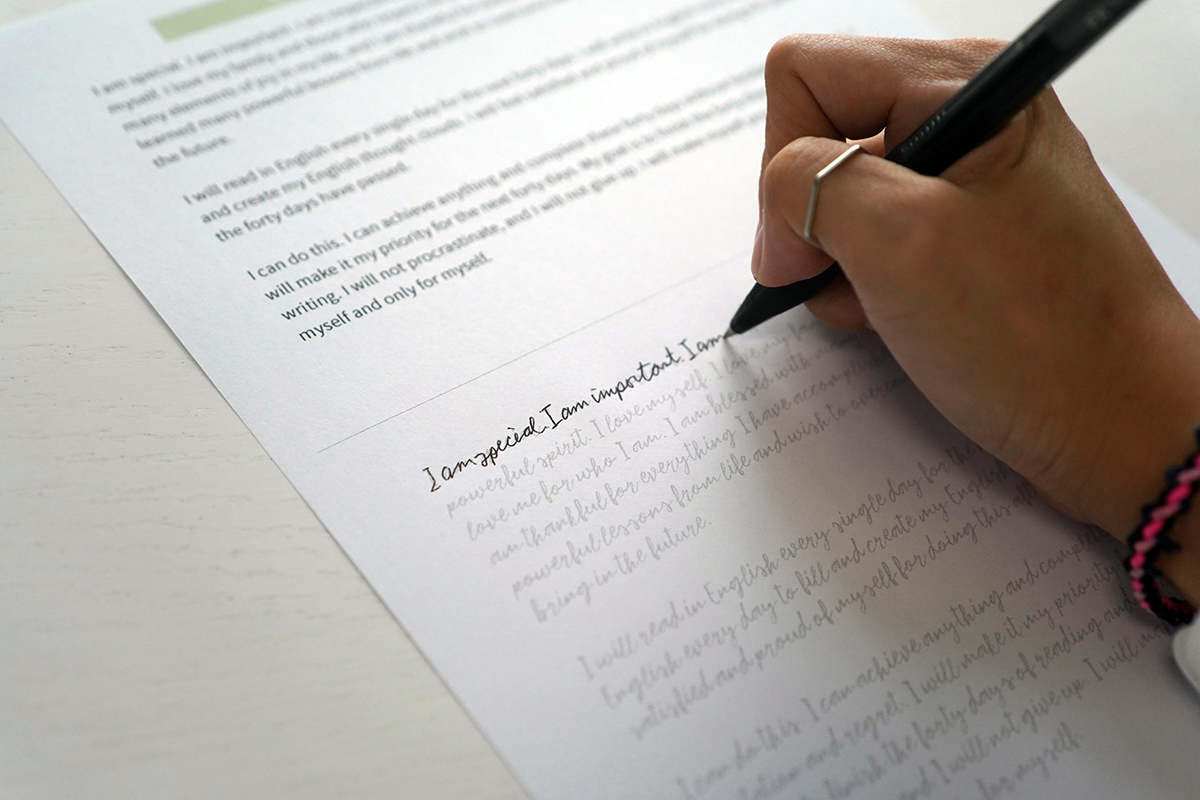 I am special. I am important. I am importan
myself. I love my family and
many elements of joy in my life, and I am thankful
learned many powerful lessons from life and
the future.
I will read in English every single day for the next forty days. I will
and create my English thought clouds. I will feel satisfied and proud of myself
the forty days have passed.
I can do this. I can achieve anything and complete these forty days without
will make it my priority for the next forty days. My goal is to finish the forty days
writing. I will not procrastinate, and I will not give up. I will make myself
myself and only for myself.
I am special. I am important. I am
powerful spirit. I love myself. I love my
love me for who I am. I am blessed with
am thankful for everything I have accomplis
powerful lessons from life and wish to overcom
bring in the future.
I will read in English every single day for the
English every day to fill and create my English
satisfied and proud of myself for doing this aft
I can do this. I can achieve anything and comple
tation and regret. I will make it my priorit
finish the forty days of reading and
and I will not give up. I will ma
for myself.